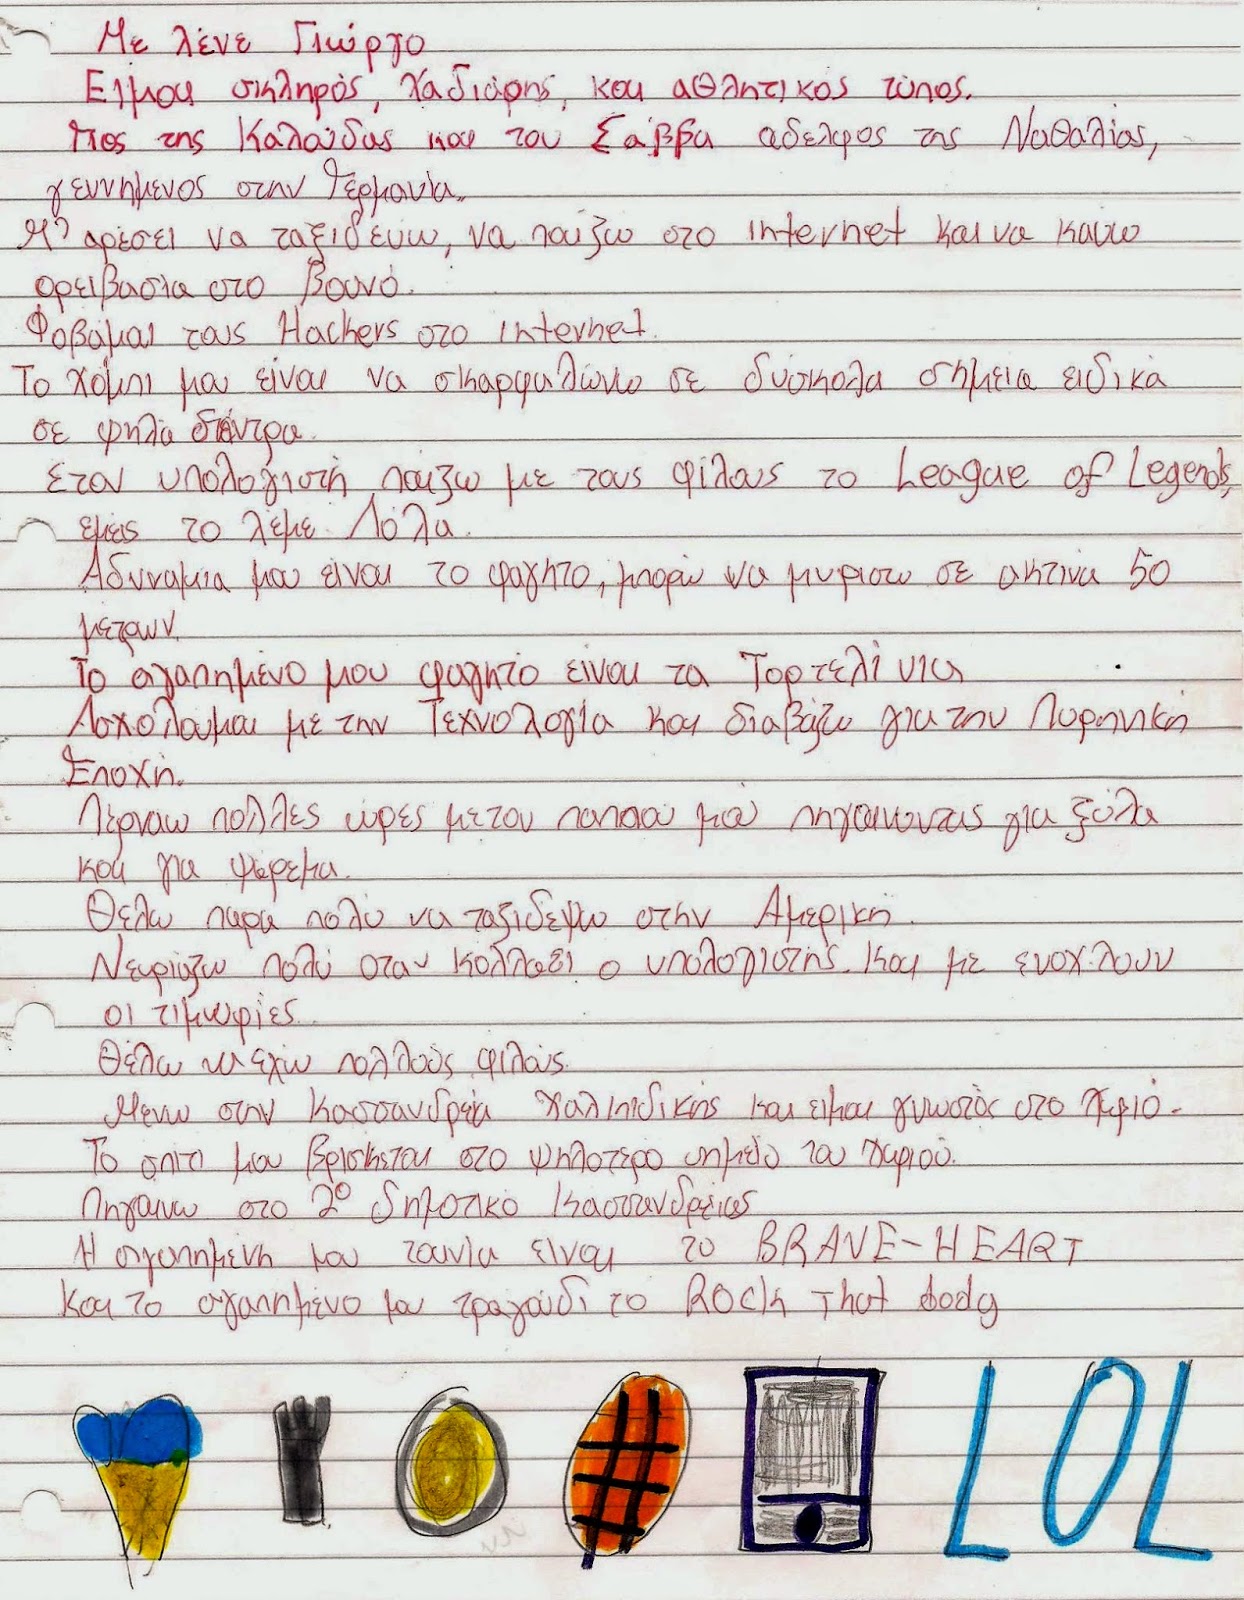 Με λένε Γιώργο
Είμαι σκληρός, Χαδιάρης, και αθλητικός τύπος.
Γιος της Καλούδας και του Σάββα αδελφος της Ναθαλίας,
γεννημενος στην Γερμανία.
Μ' αρέσει να ταξιδευω, να παίζω στο internet και να κανω
ορειβασια στο βουνό.
Φοβάμαι τους Hackers στο internet.
Το χόμπι μου είναι να σκαρφαλώνω σε δύσκολα σημεία ειδικά
σε ψηλα δέντρα.
Στον υπολογιστή παίζω με τους φίλους το League of Legends,
εμεις το λέμε Λόλα.
Αδυναμια μου είναι το φαγητο, μπορω να μυρισω σε ακτινα 50
μετρων.
Το αγαπημένο μου φαγητό είναι τα Τορτελίνια
Ασχολουμαι με την Τεχνολογία και διαβάζω για την Πυρηνική
Εποχή.
Πέρναω πολλες ώρες με τον παππού μου πηγαινοντας για ξύλα
και για ψάρεμα.
Θέλω παρα πολύ να ταξιδεψω στην Αμερική.
Νευριάζω πολύ οταν κολλαει ο υπολογιστής. και με ενοχλουν
οι τιμωρίες.
Θέλω να εχω πολλούς φιλους.
Μενω στην Κασσανδρεια Χαλκιδικής και ειμαι γνωστός στο Χωριό.
Το σπιτι μου βρισκεται στο ψηλοτερο σημείο του Χωριού.
Πηγαινω στο 2ο δημοτικό Κασσανδρείας
Η αγαπημένη μου ταινία είναι το BRAVE-HEART
Και το αγαπημένο μου τραγούδι το Rock That body
LOL